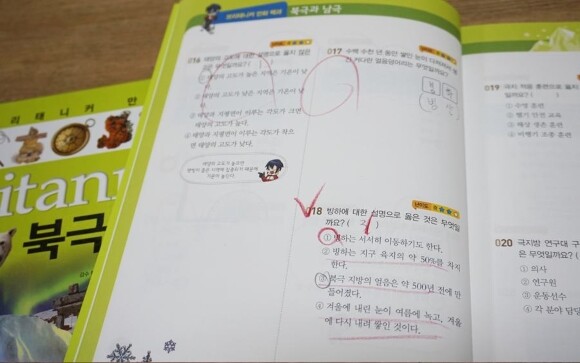 브리태니커 만화 백과
북극과 남극
016 태양의 고도에 대한 설명으로 옳지 않은
것은 무엇일까요? ( )
① 태양의 고도가 높은 지역은 기온이 낮
② 태양의 고도가 낮은 지역은 기온이 낮
③ 태양과 지평면이 이루는 각도가 크면
태양의 고도가 높다.
④ 태양과 지평면이 이루는 각도가 작으
면 태양의 고도가 낮다.
태양의 고도가 높으면
기온이 높아.
017 수백 수천 년 동안 쌓인 눈이
얼음덩어리는 무엇일까요?
018 빙하에 대한 설명으로 옳은 것은 무엇일
까요? ( 2 )
① 빙하는 서서히 이동하기도 한다.
② 빙하는 지구 육지의 약 50%를 차지
한다.
③ 북극 지방의 얼음은 약 500년 전에 만
들어졌다.
④ 겨울에 내린 눈이 여름에 녹고, 겨울
에 다시 내려 쌓인 것이다.
019 극지 적응 훈련으로 옳
일까요? (
① 수영 훈련
② 헬기 안전 교육
③ 해상 생존 훈련
④ 비행기 조종 훈련
020 극지방 연구대 구
은 무엇일까요? (
① 의사
② 연구원
③ 운동선수
④ 각 분야 담당
리태니커 만
itann
북극